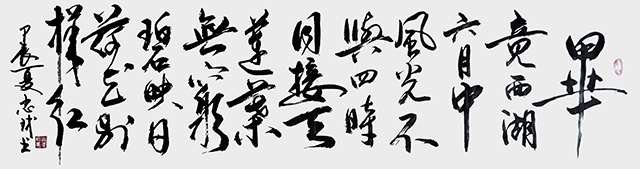 畢
竟西湖
六月中
風光不
與四時
同接天
蓮葉
無窮
碧映日
荷花別
樣紅
甲辰夏志書